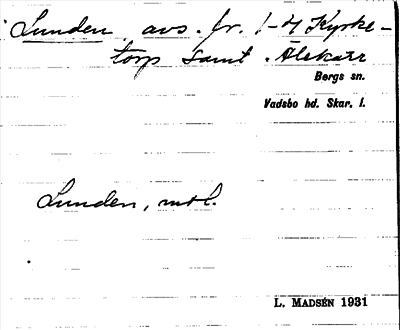 Lunden, avs. fr. 1-4 Kyrke-
torp samt Älekärr
Bergs sn.
Vadsbo hd. Skar. l.
Lunden, mtl.
L. MADSÉN 1931